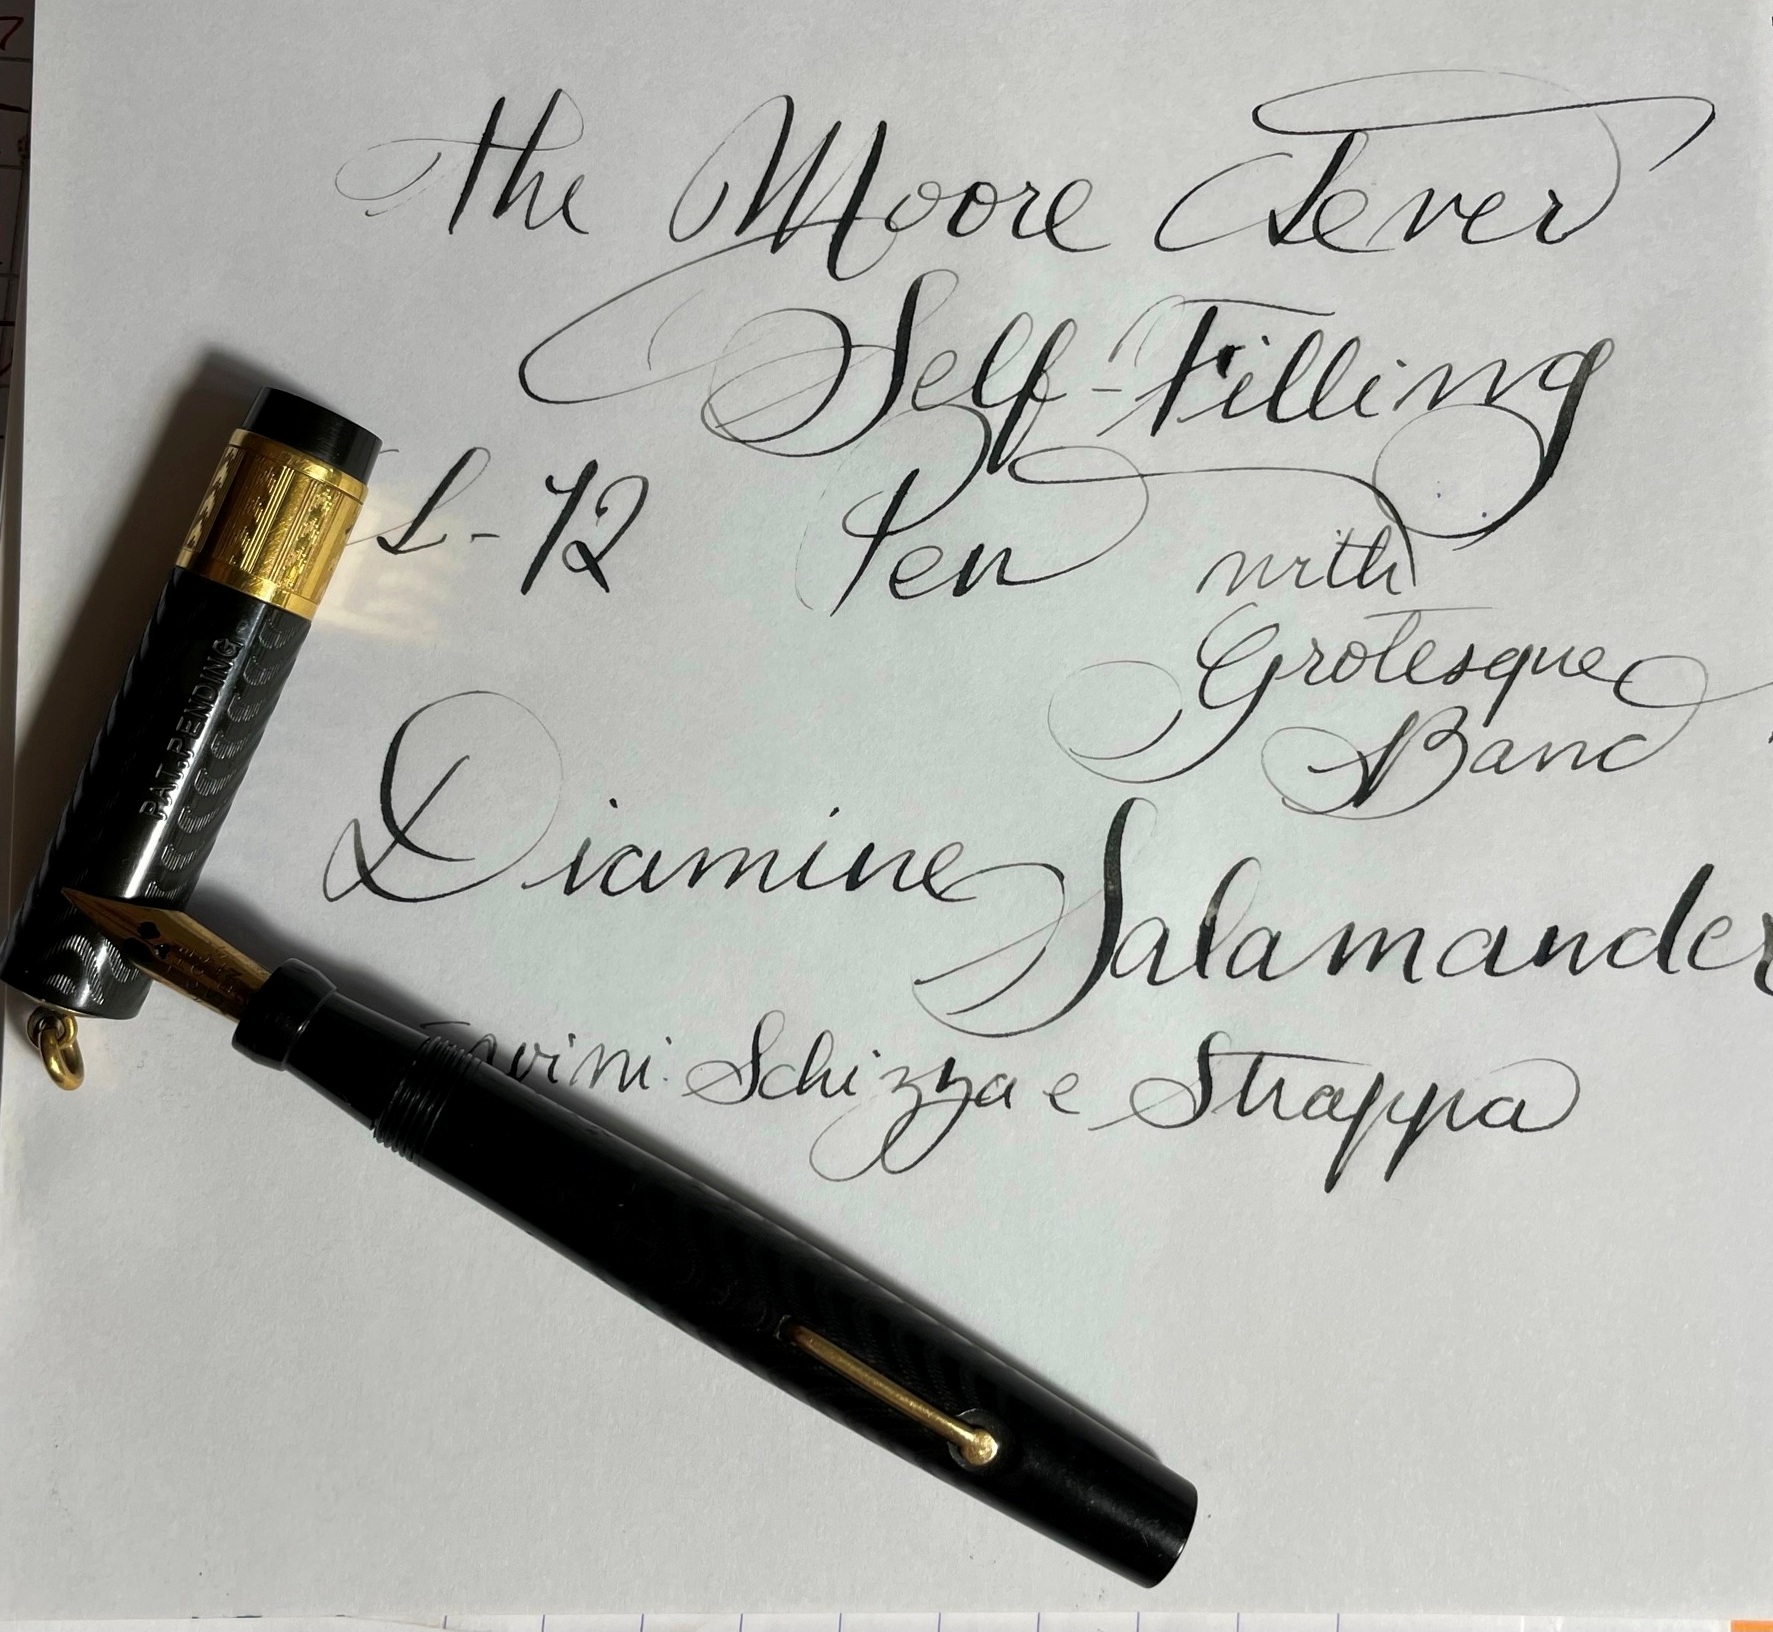 the Moore Lever
Self-Filling
L-72 Pen with
Grotesque
Band
Diamine
Salamander
Schizza e Strappa
PAT. PENDING